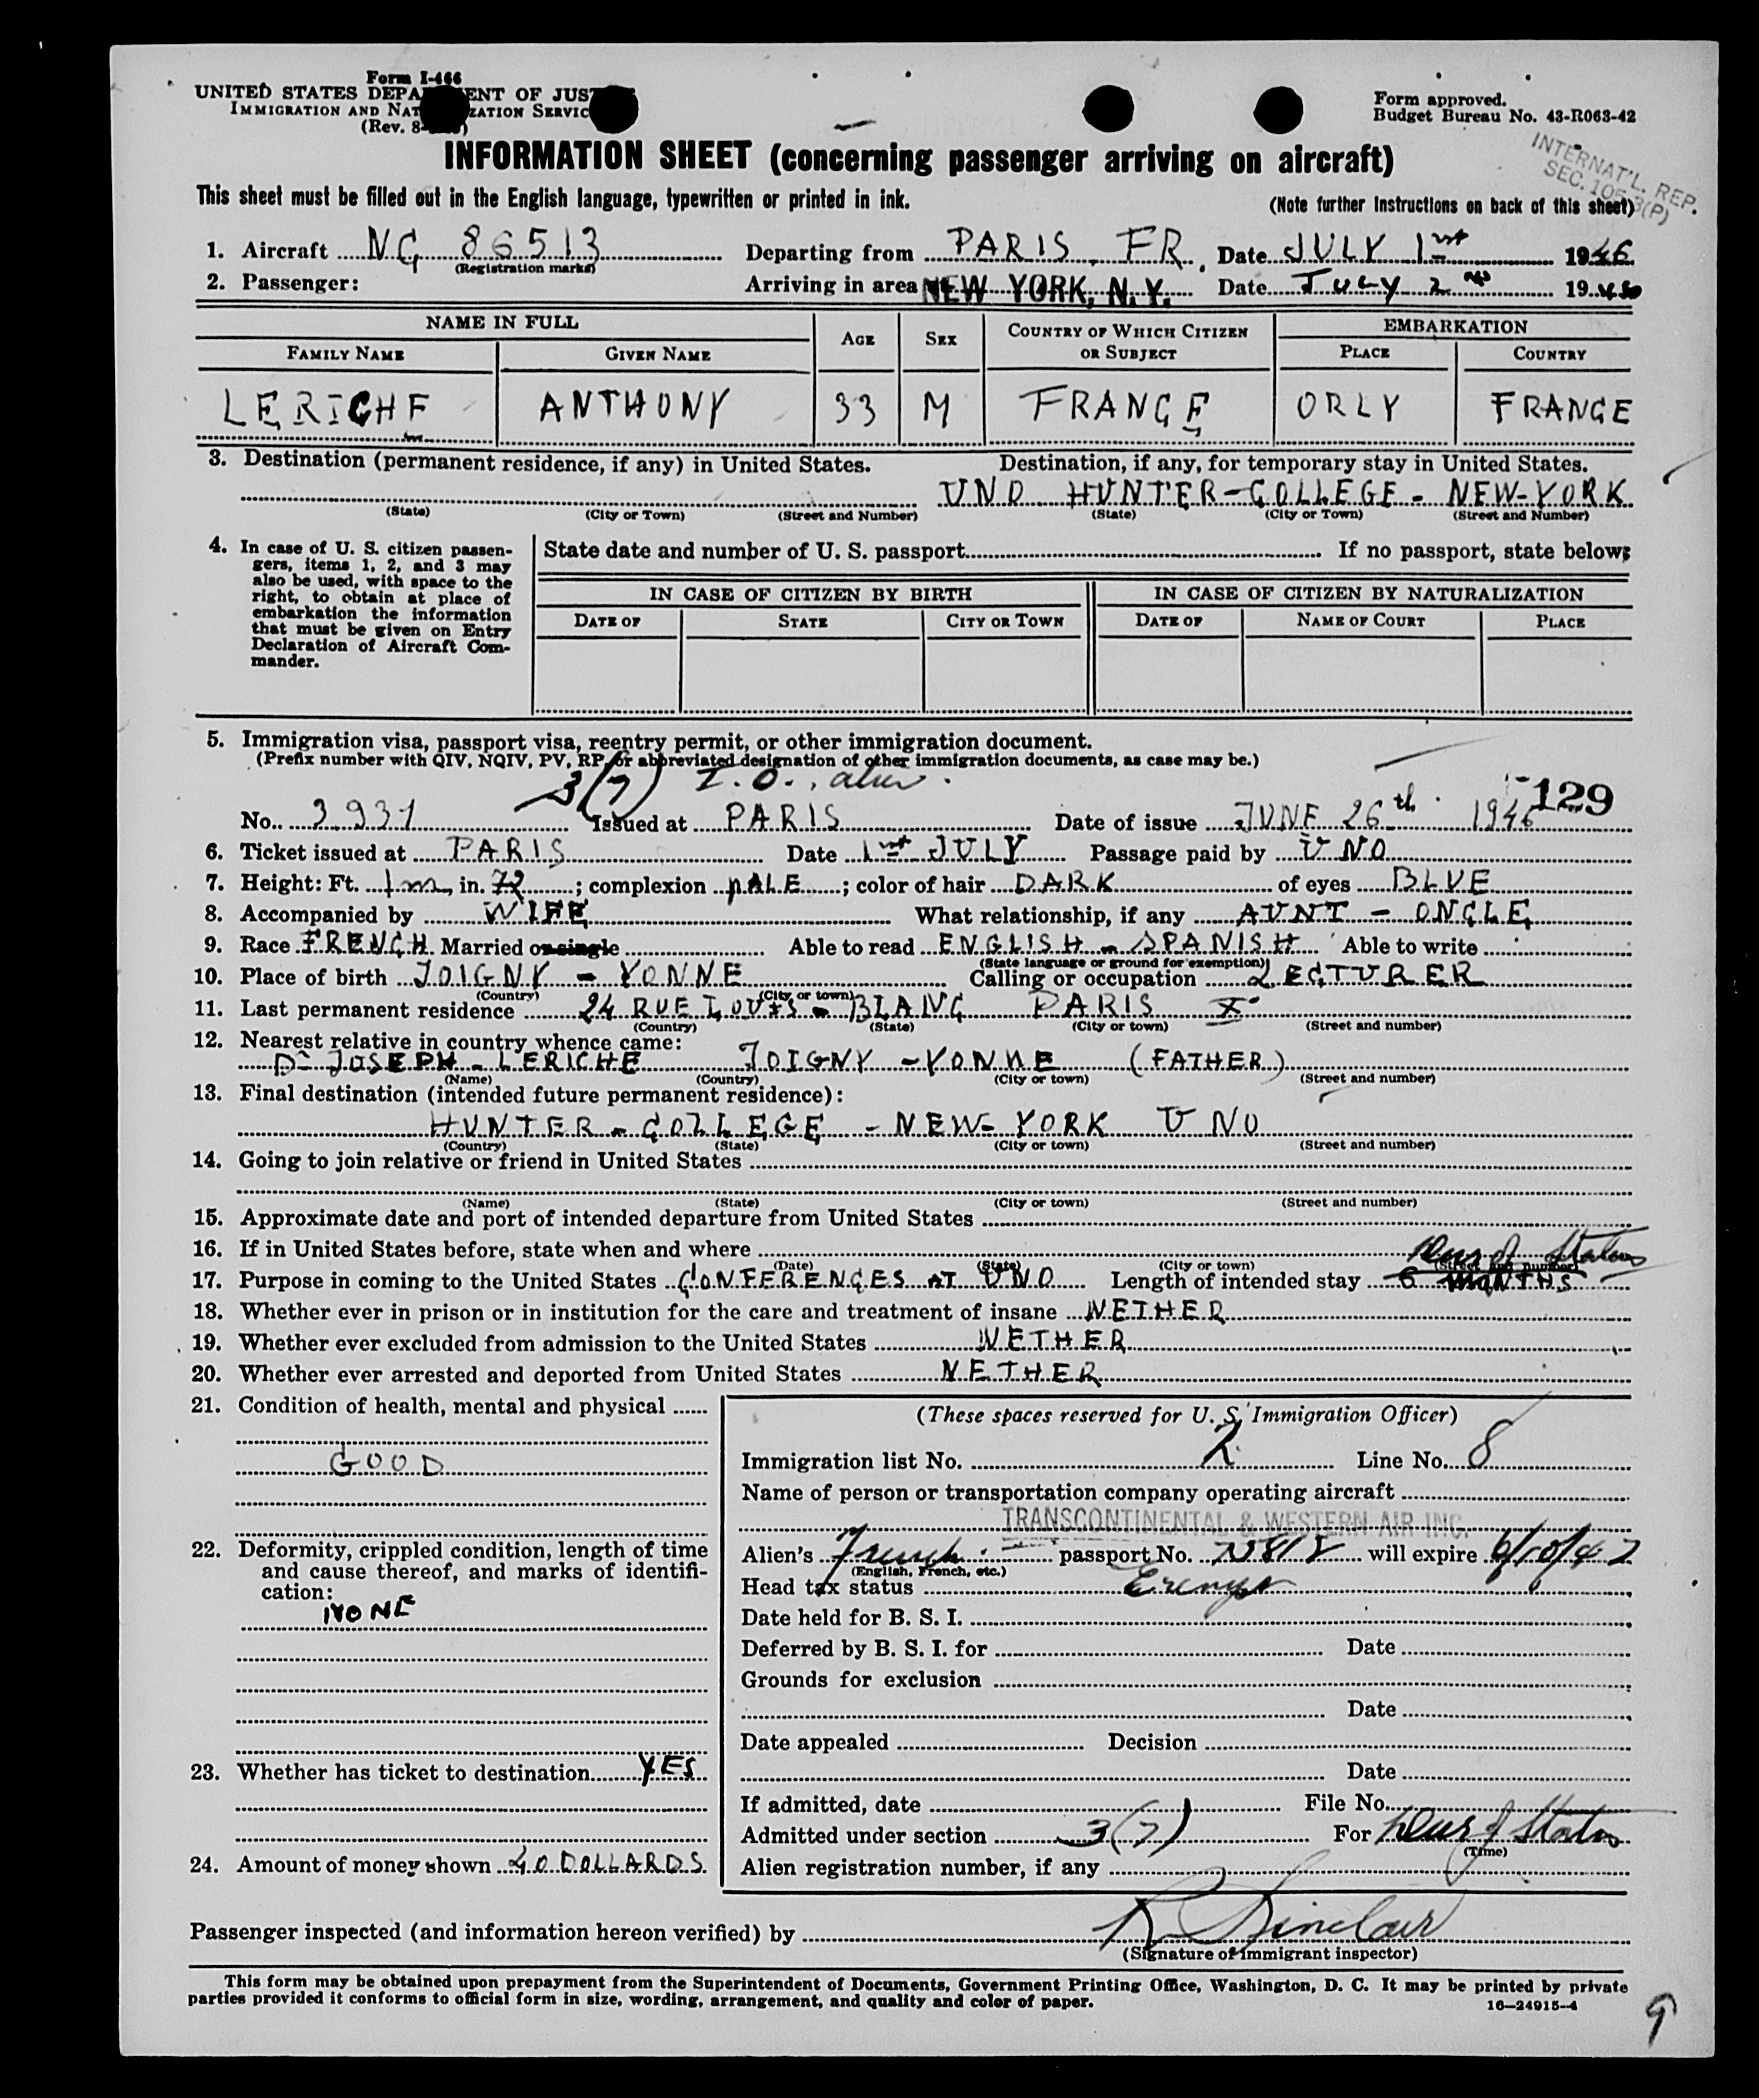 Form I-466
UNITED STATES DEPA ENT OF JUS
IMMIGRATION AND NAT ZATION SERVIC
(Rev. 8- )
Form approved.
Budget Bureau No. 43-R063-42
INTERNAT'L. REP.
SEC. 105.3(P)
INFORMATION SHEET (concerning passenger arriving on aircraft)
This sheet must be filled out in the English language, typewritten or printed in ink.
(Note further instructions on back of this sheet)
1. Aircraft NC 86513 Departing from PARIS. FR. Date JULY 1st 1946
(Registration marks)
2. Passenger: Arriving in area NEW YORK, N.Y. Date JULY 2nd 1946
NAME IN FULL AGE SEX COUNTRY OF WHICH CITIZEN OR SUBJECT EMBARKATION
FAMILY NAME GIVEN NAME PLACE COUNTRY
LERICHE ANTHONY 33 M FRANCE ORLY FRANCE
3. Destination (permanent residence, if any) in United States. Destination, if any, for temporary stay in United States.
UNO HUNTER-COLLEGE - NEW-YORK
(State) (City or Town) (Street and Number) (State) (City or Town) (Street and Number)
4. In case of U. S. citizen passen-
gers, items 1, 2, and 3 may
also be used, with space to the
right, to obtain at place of
embarkation the information
that must be given on Entry
Declaration of Aircraft Com-
mander.
State date and number of U. S. passport If no passport, state below:
IN CASE OF CITIZEN BY BIRTH IN CASE OF CITIZEN BY NATURALIZATION
DATE OF STATE CITY OR TOWN DATE OF NAME OF COURT PLACE
5. Immigration visa, passport visa, reentry permit, or other immigration document.
(Prefix number with QIV, NQIV, PV, RP, or abbreviated designation of other immigration documents, as case may be.)
3(7) I.O. alien
129
No. 3931 Issued at PARIS Date of issue JUNE 26th 1946
6. Ticket issued at PARIS Date 1st JULY Passage paid by UNO
7. Height: Ft. 1m in. 72 ; complexion PALE ; color of hair DARK of eyes BLUE
8. Accompanied by WIFE What relationship, if any AUNT - ONCLE
9. Race FRENCH Married or single Able to read ENGLISH - SPANISH Able to write
(State language or ground for exemption)
10. Place of birth JOIGNY - YONNE Calling or occupation LECTURER
(Country) (City or town)
11. Last permanent residence 24 RUE LOUIS - BLANC PARIS X
(Country) (State) (City or town) (Street and number)
12. Nearest relative in country whence came:
Dr JOSEPH - LERICHE JOIGNY - YONNE (FATHER)
(Name) (Country) (City or town) (Street and number)
13. Final destination (intended future permanent residence):
HUNTER - COLLEGE - NEW-YORK UNO
(Country) (State) (City or town) (Street and number)
14. Going to join relative or friend in United States
(Name) (State) (City or town) (Street and number)
15. Approximate date and port of intended departure from United States
16. If in United States before, state when and where
(Date) (State) (City or town) (Street and number)
Dur of Status
17. Purpose in coming to the United States CONFERENCES AT UNO Length of intended stay 6 MONTHS
18. Whether ever in prison or in institution for the care and treatment of insane NETHER
19. Whether ever excluded from admission to the United States NETHER
20. Whether ever arrested and deported from United States NETHER
21. Condition of health, mental and physical
GOOD
22. Deformity, crippled condition, length of time
and cause thereof, and marks of identifi-
cation:
NONE
23. Whether has ticket to destination YES
24. Amount of money shown 40 DOLLARDS.
(These spaces reserved for U. S. Immigration Officer)
Immigration list No. 2 Line No. 8
Name of person or transportation company operating aircraft
TRANSCONTINENTAL & WESTERN AIR INC.
Alien's French passport No. will expire 6/10/47
(English, French, etc.)
Head tax status Exempt
Date held for B. S. I.
Deferred by B. S. I. for Date
Grounds for exclusion
Date
Date appealed Decision
Date
If admitted, date File No.
Admitted under section 3(7) For Dur of Status
(Time)
Alien registration number, if any
Passenger inspected (and information hereon verified) by R Sinclair
(Signature of immigrant inspector)
This form may be obtained upon prepayment from the Superintendent of Documents, Government Printing Office, Washington, D. C. It may be printed by private
parties provided it conforms to official form in size, wording, arrangement, and quality and color of paper.
16—24915-4
9